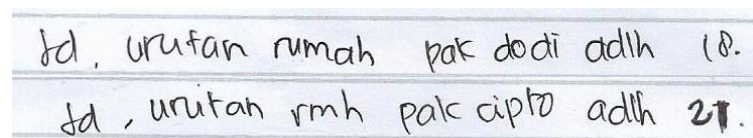 Jd, urutan rumah pak dodi adlh 18.
Jd, urutan rmh pak cipto adlh 27.